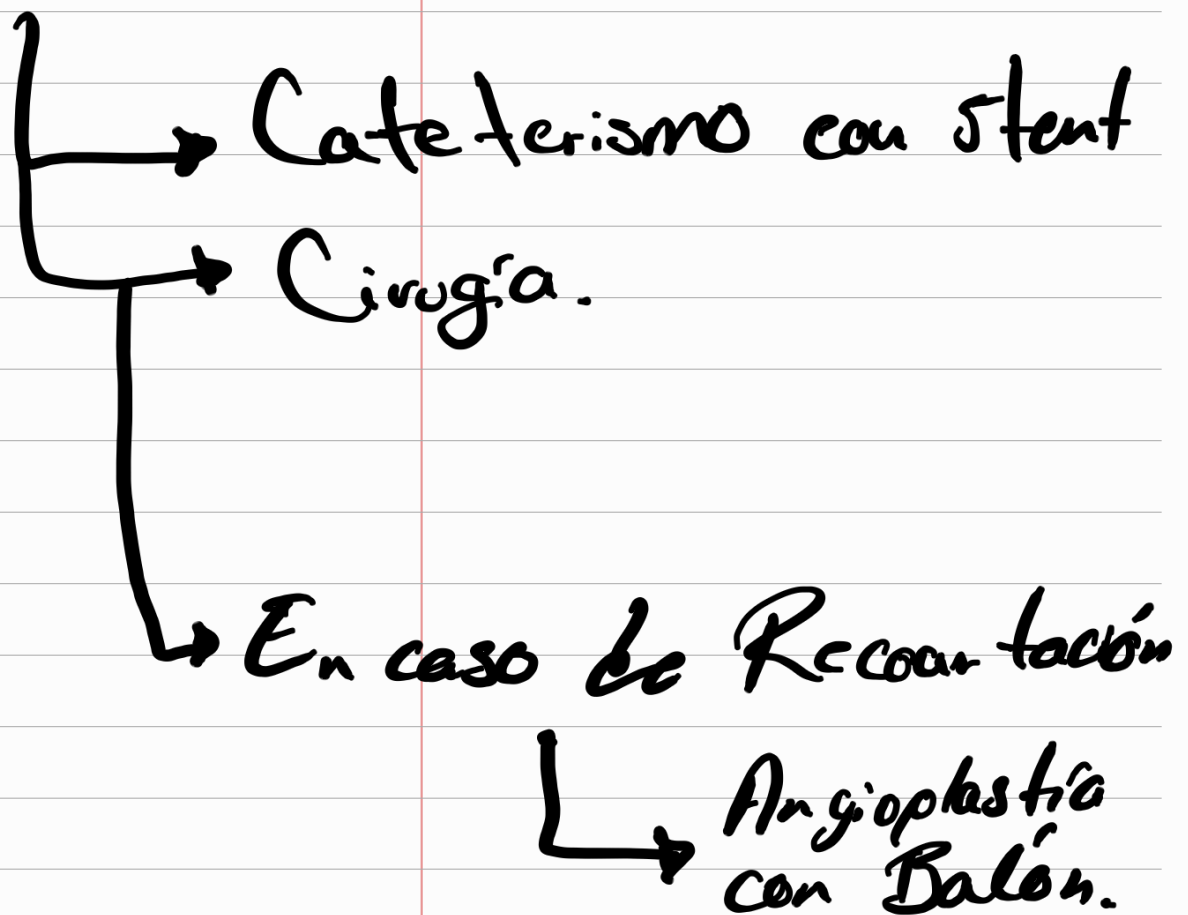 Cateterismo con stent
Cirugía.
En caso de Recoartación
Angioplastía
con Balón.